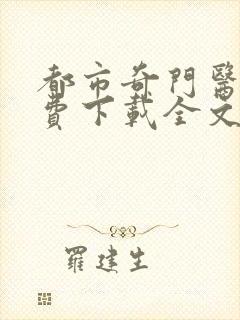 都市奇門醫
費下載全文
羅建生